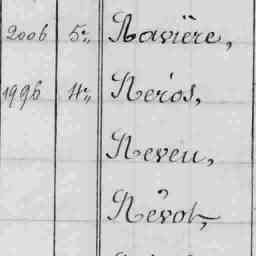 2006 5" Navière,
1996 4" Néros,
Neveu,
Névot,